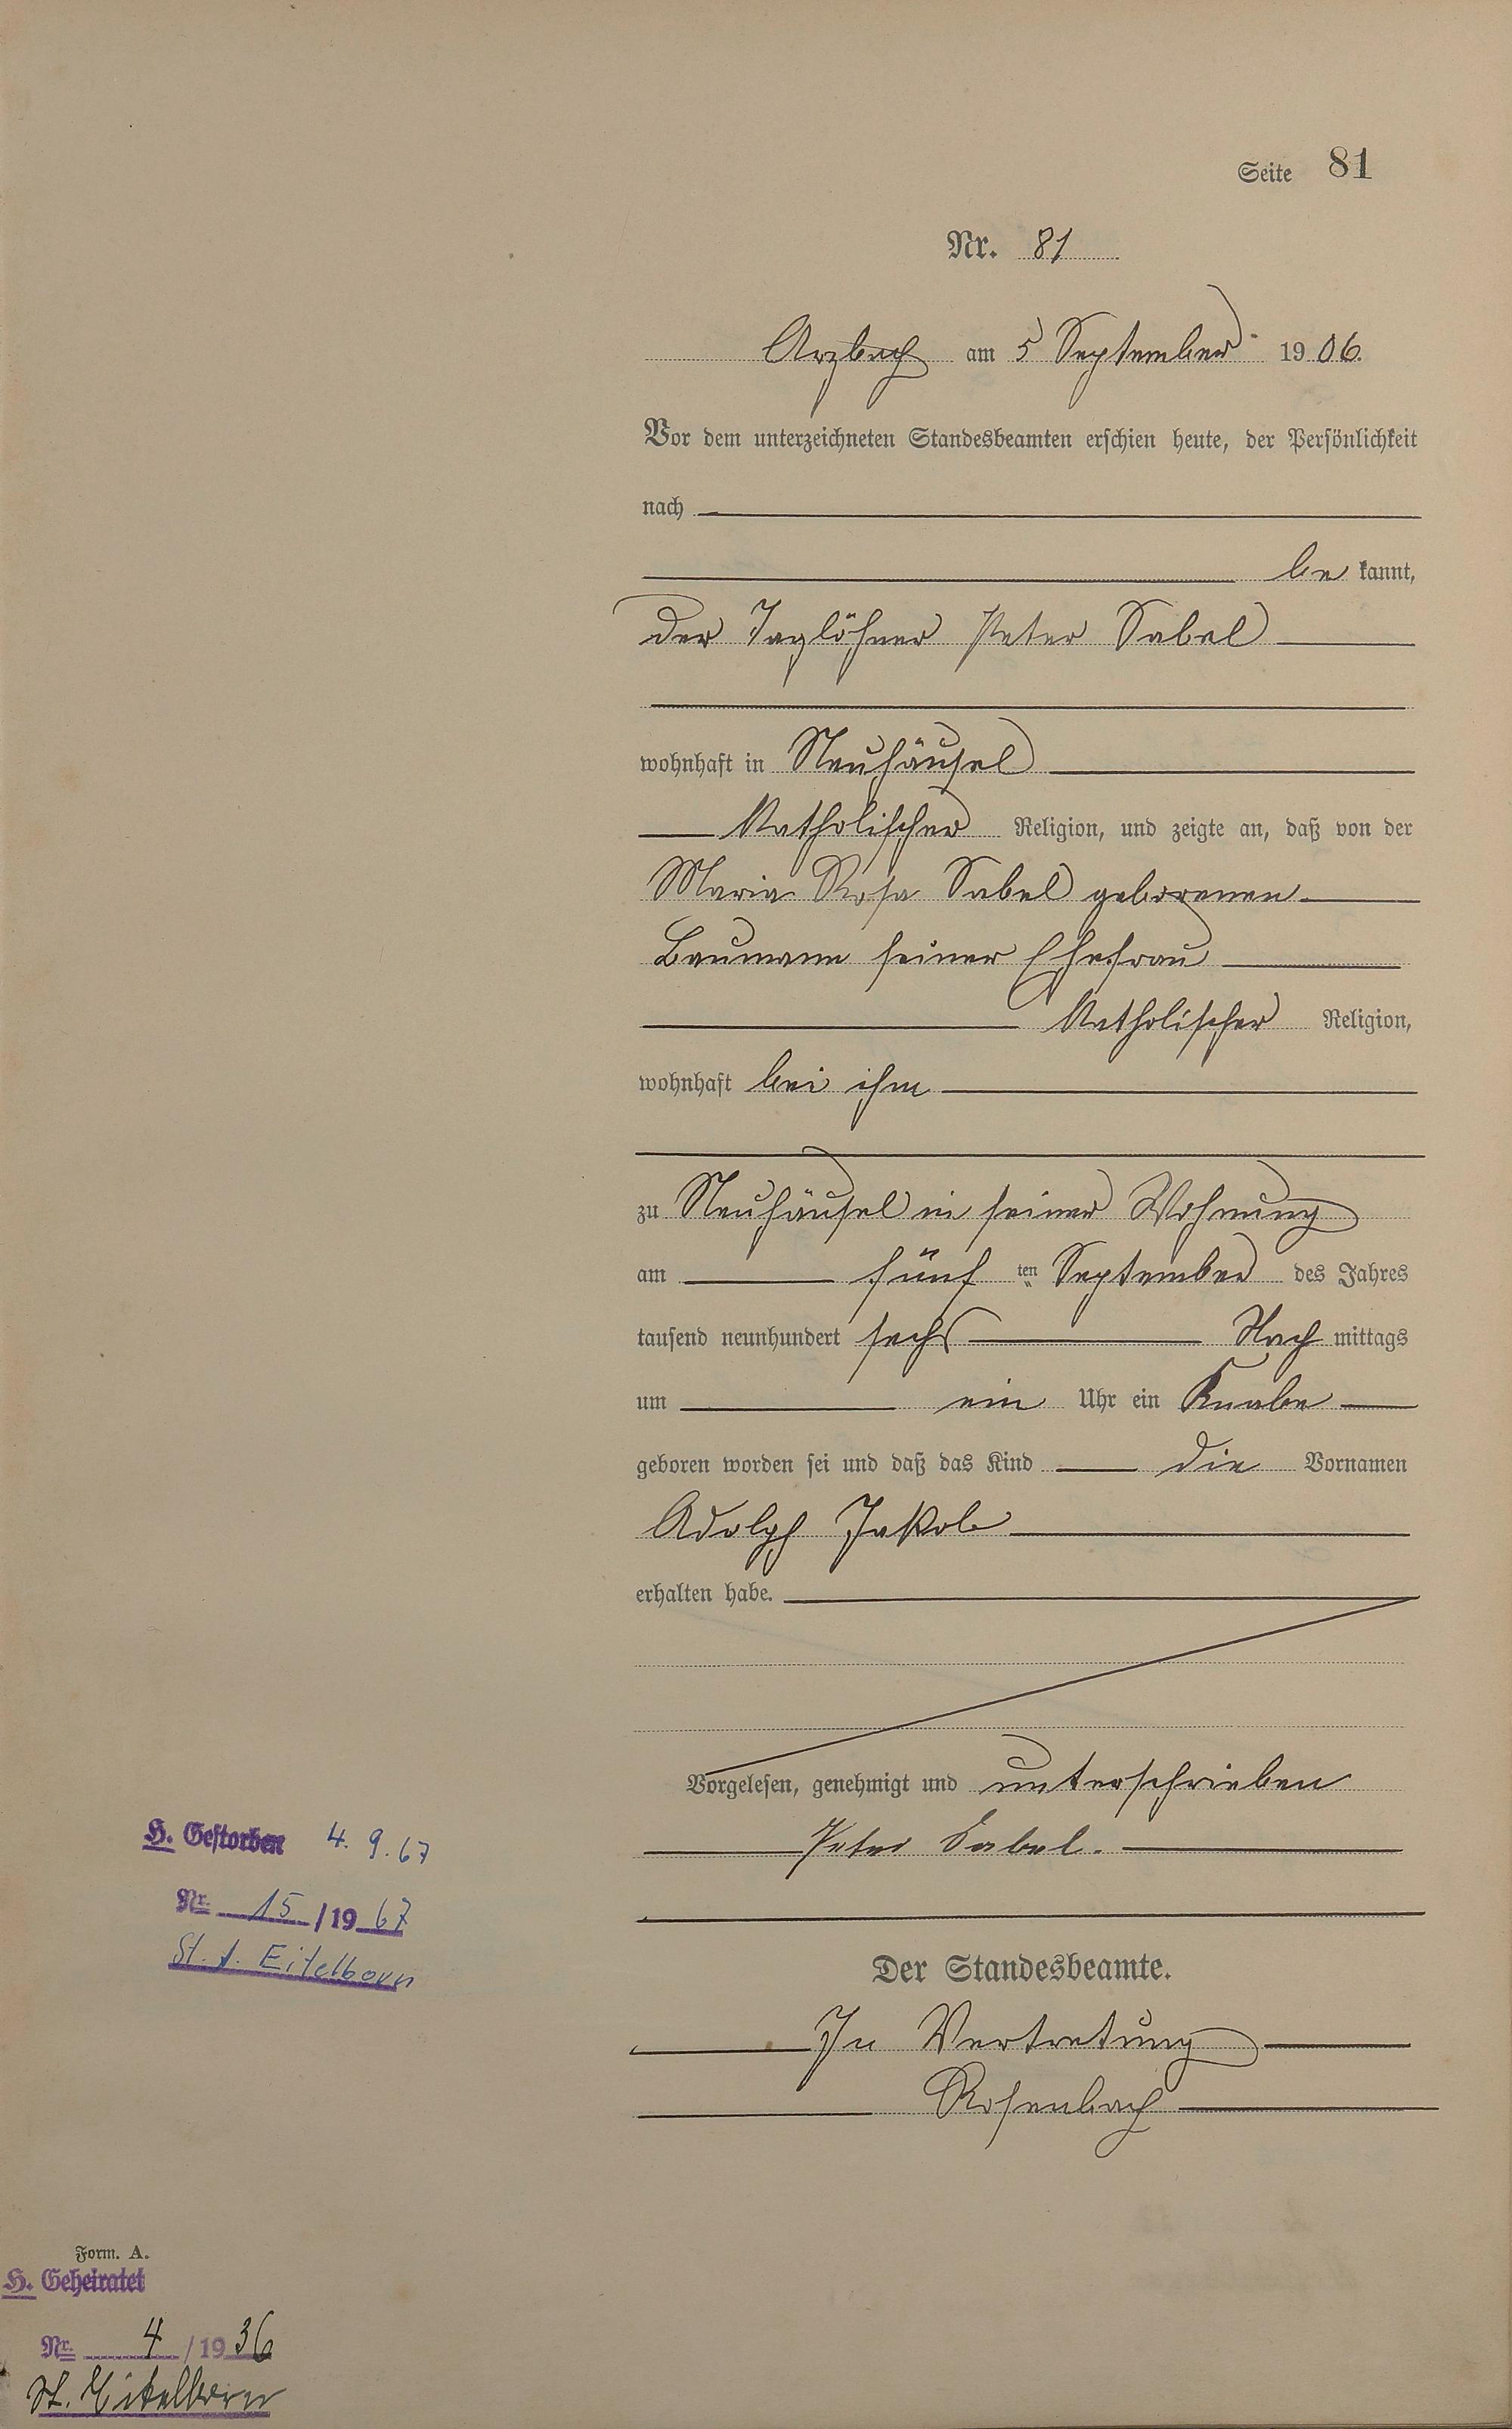 Seite 81
Nr. 81
Arzbach am 5 September 1906.
Vor dem unterzeichneten Standesbeamten erschien heute, der Persönlichkeit
nach
be kannt,
der Taglöhner Peter Sabel
wohnhaft in Neuhäusel
katholischer Religion, und zeigte an, daß von der
Maria Rosa Sabel geborenen
Baumann seiner Ehefrau
katholischer Religion,
wohnhaft bei ihm
zu Neuhäusel in seiner Wohnung
am fünf ten September des Jahres
tausend neunhundert sechs Nach mittags
um ein Uhr ein Knabe
geboren worden sei und daß das Kind die Vornamen
Adolph Jakob
erhalten habe.
Vorgelesen, genehmigt und unterschrieben
Peter Sabel.
Der Standesbeamte.
In Vertretung
Rosenbach
H. Gestorben 4. 9. 67
Nr. 15 / 1967
St. A. Eitelborn
Form. A.
H. Geheiratet
Nr. 4 / 1936
St. Eitelborn